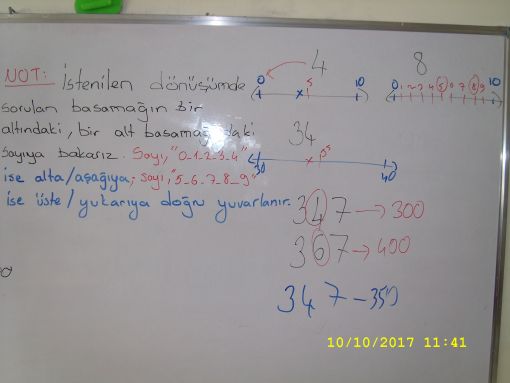 NOT: İstenilen dönüşümde
sorulan basamağın bir
altındaki, bir alt basamağındaki
sayıya bakarız. Sayı, "0-1-2-3-4"
ise alta/aşağıya; sayı, "5-6-7-8-9"
ise üste/yukarıya doğru yuvarlanır.
4
0 5 10
8
0 1 2 3 4 5 6 7 8 9 10
34
30 35 40
347 → 300
367 → 400
347 - 350
10/10/2017 11:41